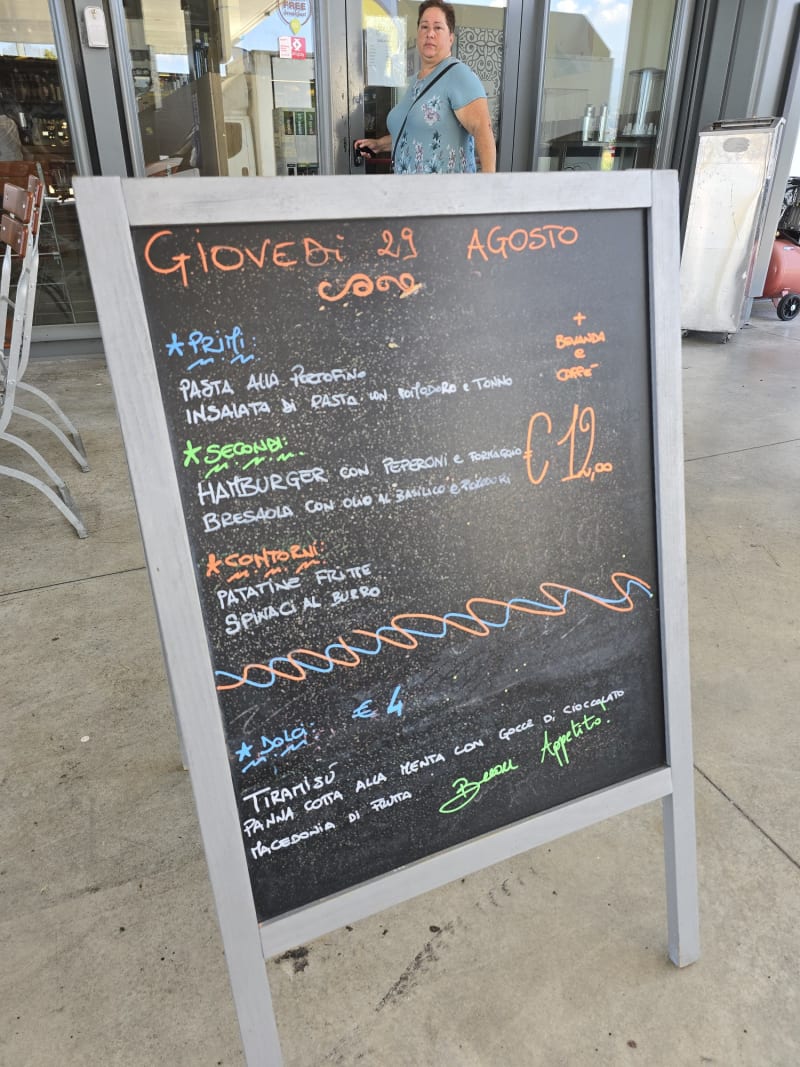 GIOVEDI 29 AGOSTO
+
BEVANDA
e
CAFFE'
*PRIMI:
PASTA ALLA PORTOFINO
INSALATA DI PASTA CON POMODORO e TONNO
*SECONDI:
HAMBURGER CON PEPERONI e FORMAGGIO
BRESAOLA CON OLIO AL BASILICO e POMODORI
€ 12,00
*CONTORNI:
PATATINE FRITTE
SPINACI AL BURRO
*DOLCI: € 4
TIRAMISÙ
PANNA COTTA ALLA MENTA CON GOCCE DI CIOCCOLATO
MACEDONIA DI FRUTTA
Buon Appetito!
FREE